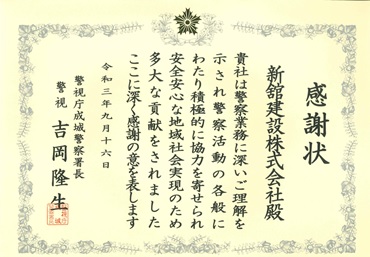 感謝状
新舘建設株式会社殿
貴社は警察業務に深いご理解を
示され警察活動の各般に
わたり積極的に協力を寄せられ
安全安心な地域社会実現のため
多大な貢献をされました
ここに深く感謝の意を表します
令和三年九月十六日
警視庁成城警察署長
警視 吉岡隆生